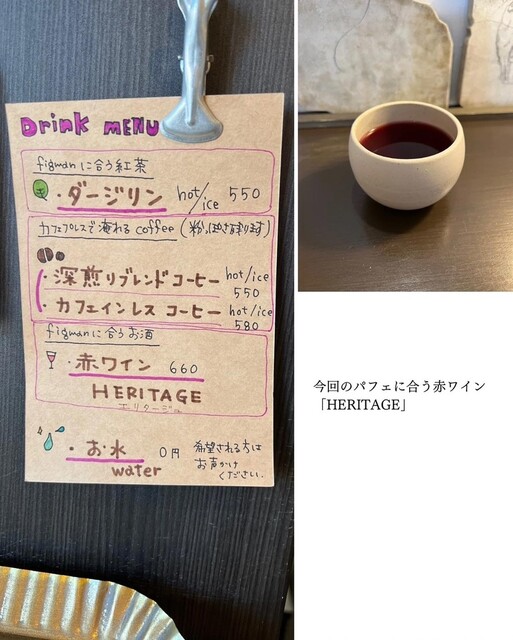 Drink MENU
figmanに合う紅茶
・ダージリン hot/ice 550
カフェプレスで淹れるcoffee（粉っぽさ有ります）
・深煎りブレンドコーヒー hot/ice 550
・カフェインレス コーヒー hot/ice 580
figmanに合うお酒
・赤ワイン 660
HERITAGE
・お水 0円
water
希望される方は
お声かけ
ください。
今回のパフェに合う赤ワイン
「HERITAGE」